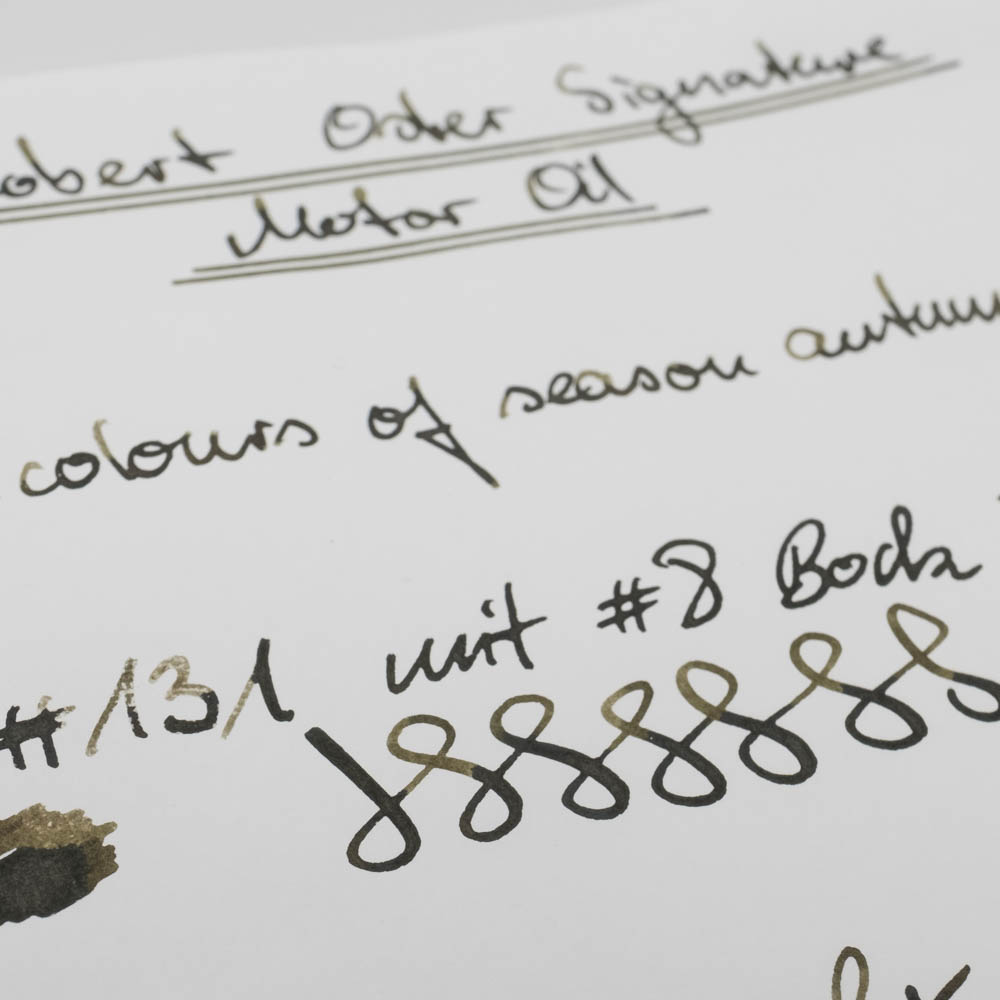 obert Oster Signature
Motor Oil
colours of season autum
#131 mit #8 Bock